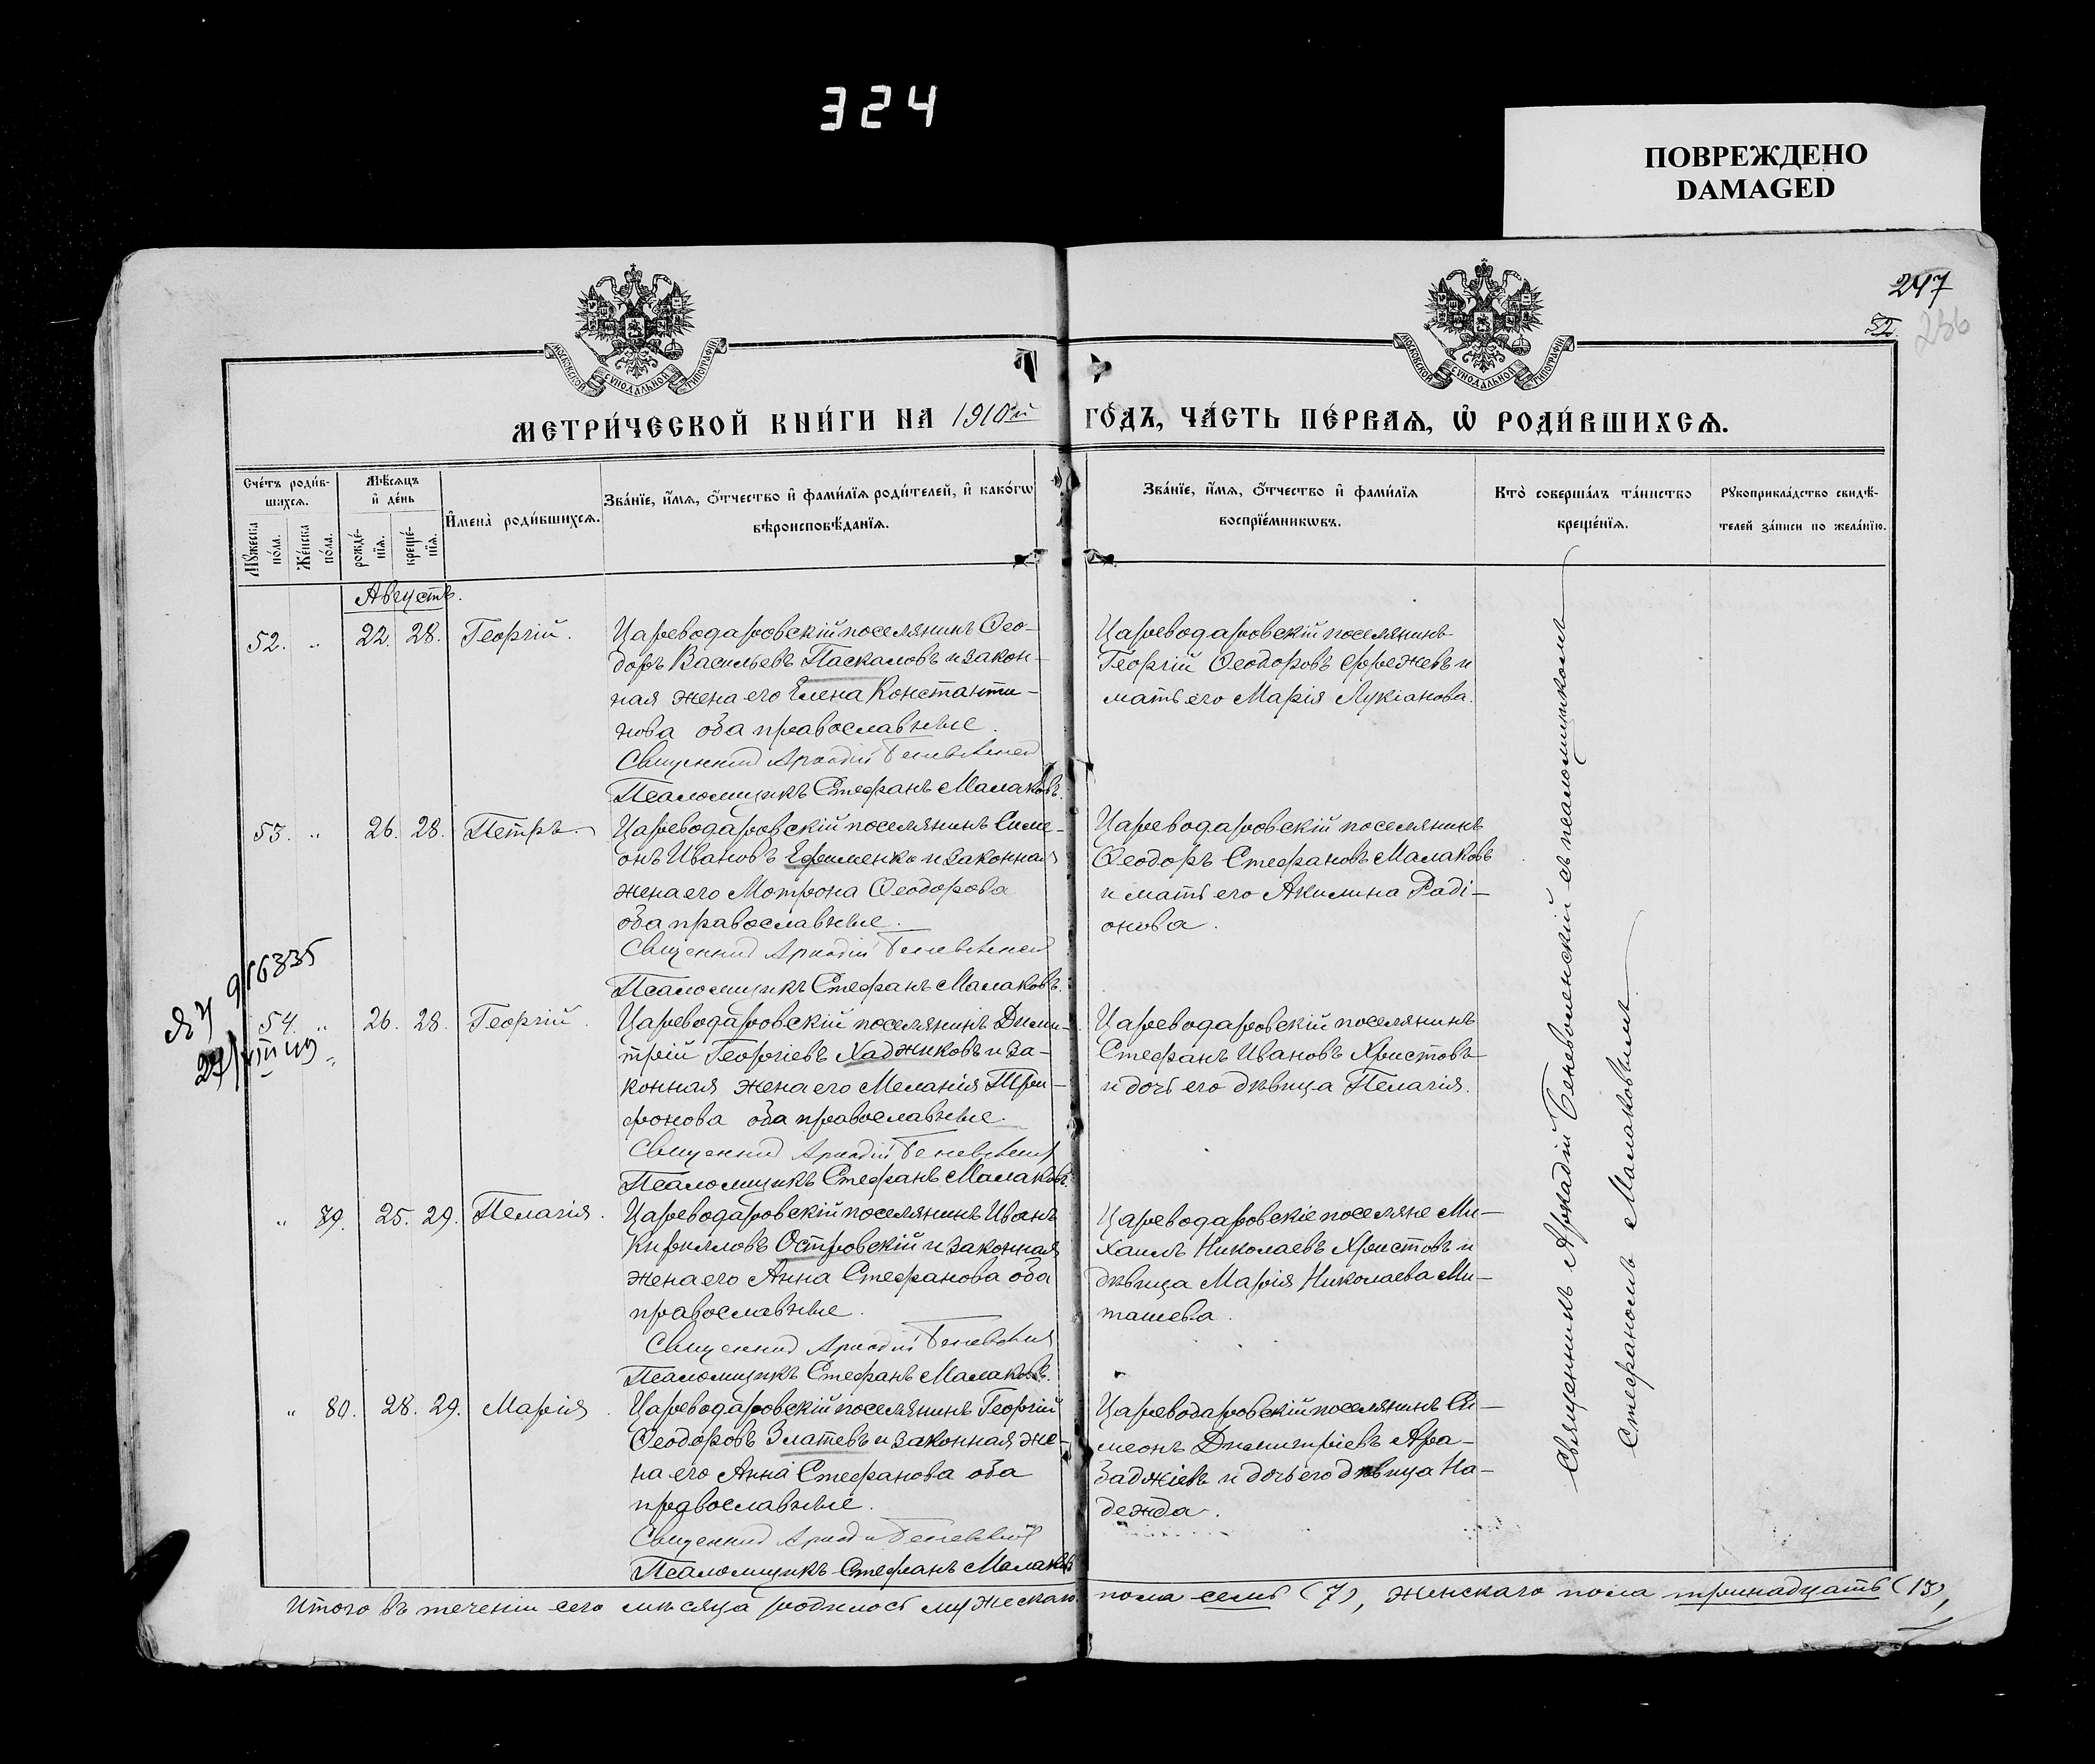 324
ПОВРЕЖДЕНО
DAMAGED
247
52.
236
МОСКОВСКОЙ СѴНОДАЛЬНОЙ ТИПОГРАФІИ
МОСКОВСКОЙ СѴНОДАЛЬНОЙ ТИПОГРАФІИ
МЕТРИ́ЧЕСКОЙ КНИ́ГИ НА 1910й ГО́ДЪ, ЧА́СТЬ ПЕ́РВАѦ, Ѡ РОДИ́ВШИХСѦ.
Сче́тъ роди́в-
шихсѧ.
Мꙋ́жеска по́ла.
Же́нска по́ла.
Мѣ́сѧцъ
и҆ де́нь
рожде́-
нїѧ.
креще́-
нїѧ.
И҆мена̀ роди́вшихсѧ.
Зва́нїе, и҆́мѧ, ѻ҆́тчество и҆ фами́лїѧ роди́телей, и҆ како́гѡ
вѣроисповѣ́данїѧ.
Зва́нїе, и҆́мѧ, ѻ҆́тчество и҆ фами́лїѧ
воспрїе́мникѡвъ.
Кто̀ соверша́лъ та́инство
креще́нїѧ.
Рꙋкоприкла́дство свидѣ́-
телей за́писи по жела́нїю.
Августъ.
52. " 22. 28. Георгій.
Цареводаровскій поселянинъ Ѳео-
доръ Васильевъ Паскаловъ и закон-
ная жена его Елена Константи-
нова оба православные.
Священникъ Аркадій Беневоленскій
Псаломщикъ Стефанъ Малаковъ.
Цареводаровскій поселянинъ
Георгій Ѳеодоровъ и
мать его Марія Лукіанова.
53. " 26. 28. Петръ.
Цареводаровскій поселянинъ Симе-
онъ Ивановъ Ефименко и законная
жена его Мотрона Ѳеодорова
оба православные.
Священникъ Аркадій Беневоленскій
Псаломщикъ Стефанъ Малаковъ.
Цареводаровскій поселянинъ
Ѳеодоръ Стефановъ Малаковъ
и мать его Акилина Раді-
онова.
916335
54. " 26. 28. Георгій.
Цареводаровскій поселянинъ Дими-
трій Георгіевъ Хаджиковъ и за-
конная жена его Меланія Три-
фонова оба православные.
Священникъ Аркадій Беневоленскій
Псаломщикъ Стефанъ Малаковъ.
Цареводаровскій поселянинъ
Стефанъ Ивановъ Христовъ
и дочь его дѣвица Пелагія.
" 79. 25. 29. Пелагія.
Цареводаровскій поселянинъ Иванъ
Кирилловъ Островскій и законная
жена его Анна Стефанова оба
православные.
Священникъ Аркадій Беневоленскій
Псаломщикъ Стефанъ Малаковъ.
Цареводаровскіе поселяне Ми-
хаилъ Николаевъ Христовъ и
дѣвица Марія Николаева Ми-
ташева.
" 80. 28. 29. Марія.
Цареводаровскій поселянинъ Георгій
Ѳеодоровъ Златевъ и законная же-
на его Анна Стефанова оба
православные.
Священникъ Аркадій Беневоленскій
Псаломщикъ Стефанъ Малаковъ
Цареводаровскій поселянинъ Си-
меонъ Димитріевъ Ара-
баджіевъ и дочь его дѣвица На-
дежда.
Священникъ Аркадій Беневоленскій съ псаломщикомъ
Стефаномъ Малаковымъ
Итого въ теченіи сего мѣсяца родилось мужескаго пола семь (7), женскаго пола тринадцать (13),